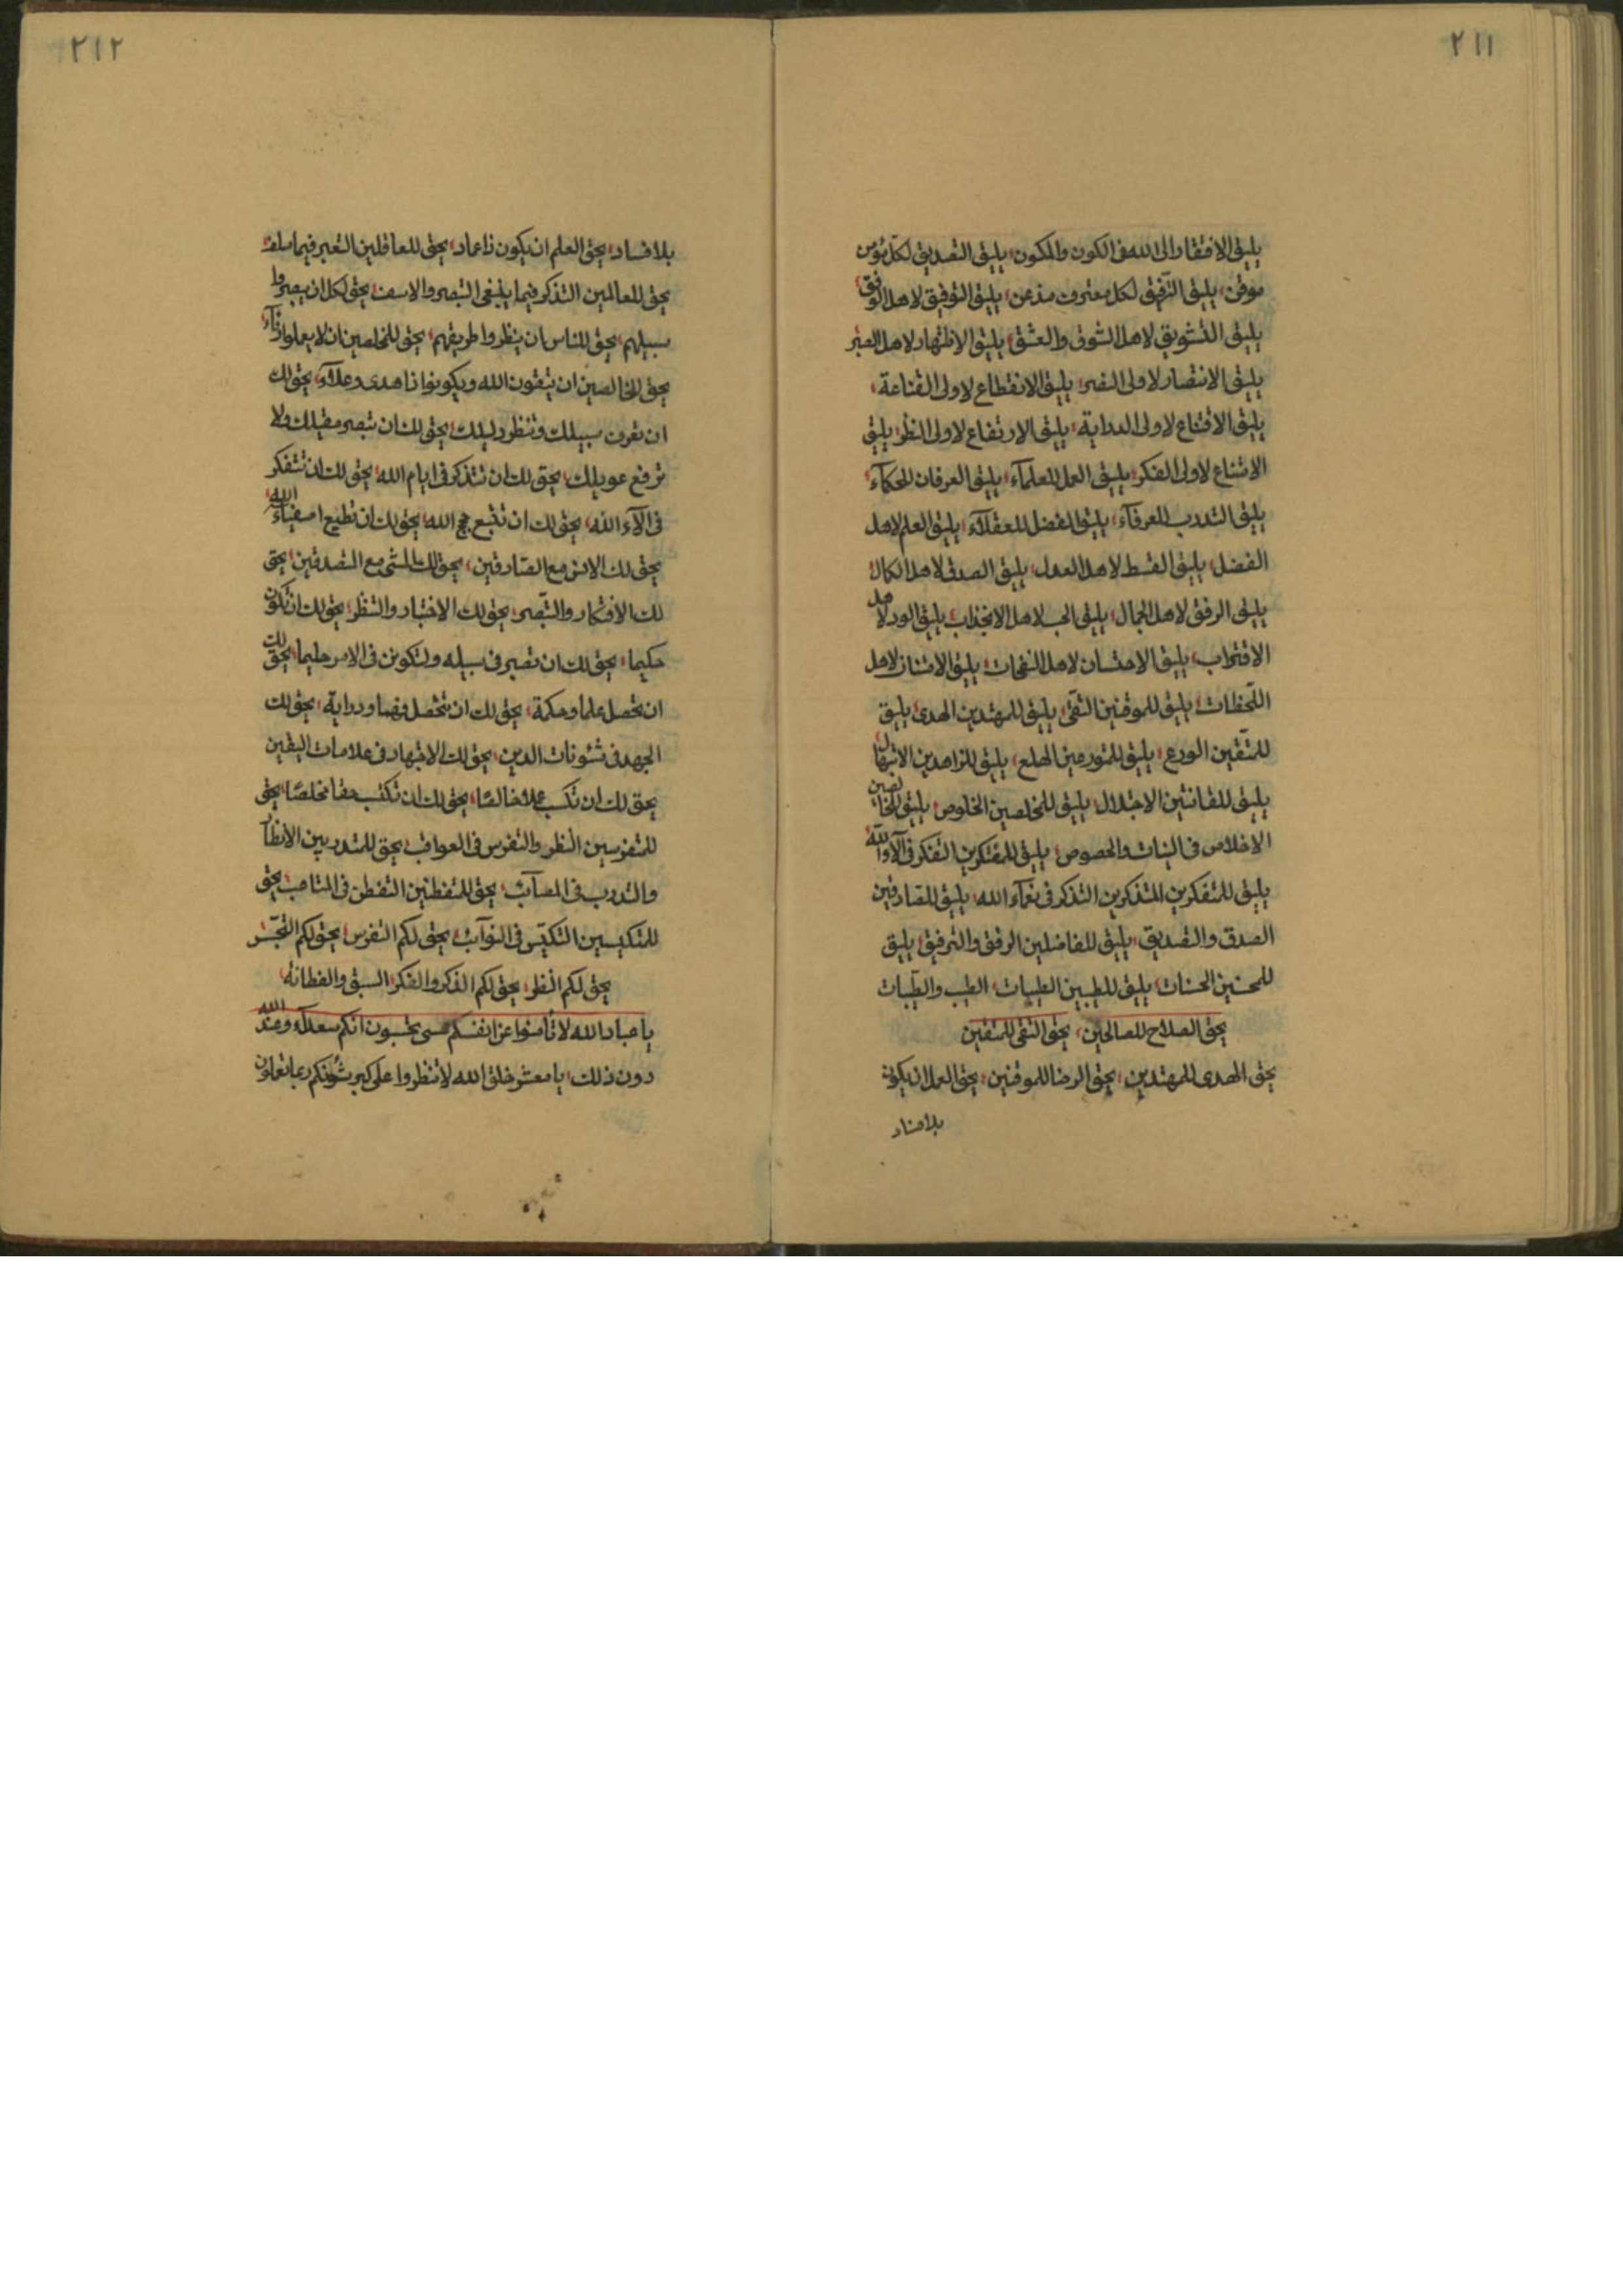 ٢١١
يليق الافتقار الى الله فى الكون والمكون، يليق التصديق لكل مؤمن
موقن، يليق الترفيق لكل معترف مذعن، يليق التوفيق لاهل الوفق،
يليق التشويق لاهل الشوق والعشق، يليق الاظهار لاهل الصبر
يليق الانتصار لاولى النصر، يليق الانقطاع لاولى القناعة،
يليق الاقناع لاولى الدراية، يليق الارتفاع لاولى النظر، يليق
الامتناع لاولى الفكر، يليق العمل للعلمآء، يليق العرفان للحكمآء،
يليق التدرب للعرفآء، يليق الفضل للعقلآء، يليق العلم لاهل
الفضل، يليق القسط لاهل العدل، يليق الصدق لاهل الكمال،
يليق الرفق لاهل الجمال، يليق الحب لاهل الانجذاب، يليق الود لاهل
الاقتراب، يليق الاحتسان لاهل النفحات، يليق الامتناز لاهل
اللحظات، يليق للموقنين التقى، يليق للمهتدين الهدى، يليق
للمتقين الورع، يليق للمتورعين الهلع، يليق للزاهدين الابتهال
يليق للقانتين الاجتلال، يليق للمخلصين الخلوص، يليق للخالصين
الاخلاص فى النيات والخصوص، يليق للمفتكرين التفكر فى آلآء الله،
يليق للمتفكرين المتذكرين التذكر فى نعمآء الله، يليق للصادقين
الصدق والتصديق، يليق للفاضلين الرفق والترفيق، يليق
للمحسنين الحسنات، يليق للطيبين الطيبات، الطيب والطيبات
يحق الصلاح للصالحين، يحق التقى للمتقين
يحق الهدى للمهتدين، يحق الرضا للموقنين، يحق العمل ان يكون
بلا فساد
٢١٢
بلا فساد، يحق العلم ان يكون ذا عماد، يحق للعاقلين التعبر فيما سلف،
يحق للعالمين التذكر فيما ينبغى التبصر والاسف، يحق لكل ان يبصروا
سبيلهم، يحق للناس ان ينظروا طريقهم، يحق للمخلصين ان لا يعملوا رئآء،
يحق للخالصين ان يتقون الله ويكونوا ذا هدى وعلآء، يحق لك
ان تعرف سبيلك وتنظر دليلك، يحق لك ان تبصر مقيلك ولا
ترفع عويلك، يحق لك ان تتذكر فى ايام الله، يحق لك ان تتفكر
فى آلآء الله، يحق لك ان تتبع حجج الله، يحق لك ان تطيع اصفيآء الله،
يحق لك الانس مع الصادقين، يحق لك المشى مع المتصدقين، يحق
لك الافتكار والتبصر، يحق لك الاختبار والتنظر، يحق لك ان تكون
حكيما، يحق لك ان تصبر فى سبيله ولتكونن فى الامر حليما، يحق لك
ان تحصل علما وحكمة، يحق لك ان تتحصل فهما ودراية، يحق لك
الجهد فى شئونات الدين، يحق لك الاجتهاد فى علامات اليقين
يحق لك ان تكسب عملا خالصا، يحق لك ان تكتسب حقا مخلصا، يحق
للمتفرسين النظر والتفرس فى العواقب، يحق للمتدربين الانظار
والتدرب فى المصآئب، يحق للمتفطنين التفطن فى المتاعب، يحق
للمتكيسين التكيس فى النوآئب، يحق لكم التفرس، يحق لكم
يحق لكم النظر، يحق لكم الذكر والفكر، السبق والفطانة،
يا عباد الله لا تأمنوا عن انفسكم عسى تحسبون انكم سعدآء وعند الله
دون ذلك، يا معشر خلق الله لا تنظروا على كبر شؤنكم ربما تعملون